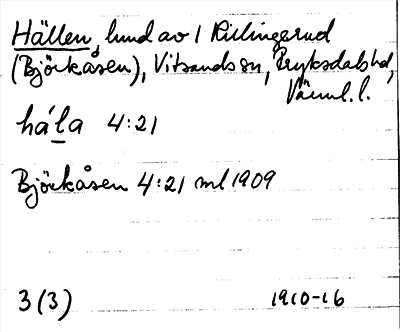 Hällen, hmd av 1 Rillingerud
(Björkåsen), Vitsands sn, Fryksdals hd,
Värml. l.
håla 4:21
Björkåsen 4:21 ml 1909
3 (3) 1910-16